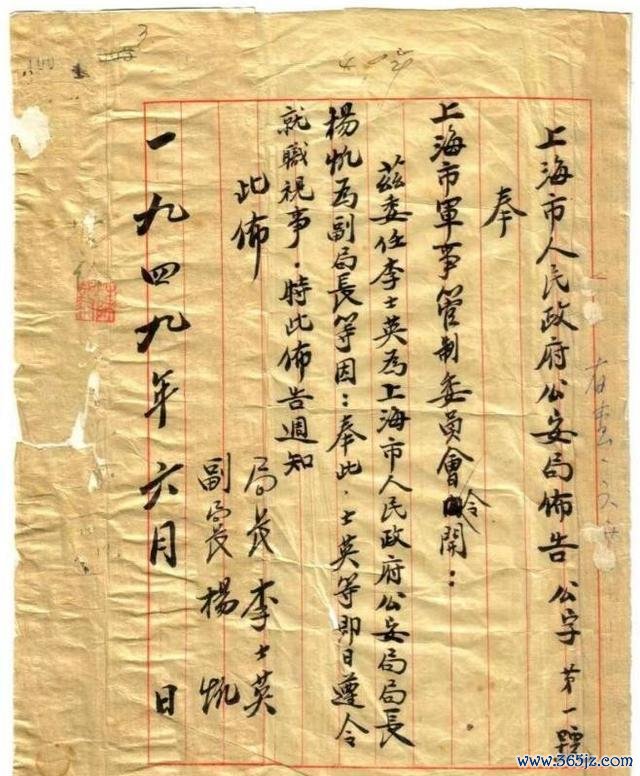 上海市人民政府公安局佈告 公字第一號
奉
上海市軍事管制委員會令開：
茲委任李士英為上海市人民政府公安局局長
楊帆為副局長等因：奉此，士英等即日遵令
就職視事，特此佈告週知
此佈
局長李士英
副局長楊帆
一九四九年六月 日
3
www.365jz.com